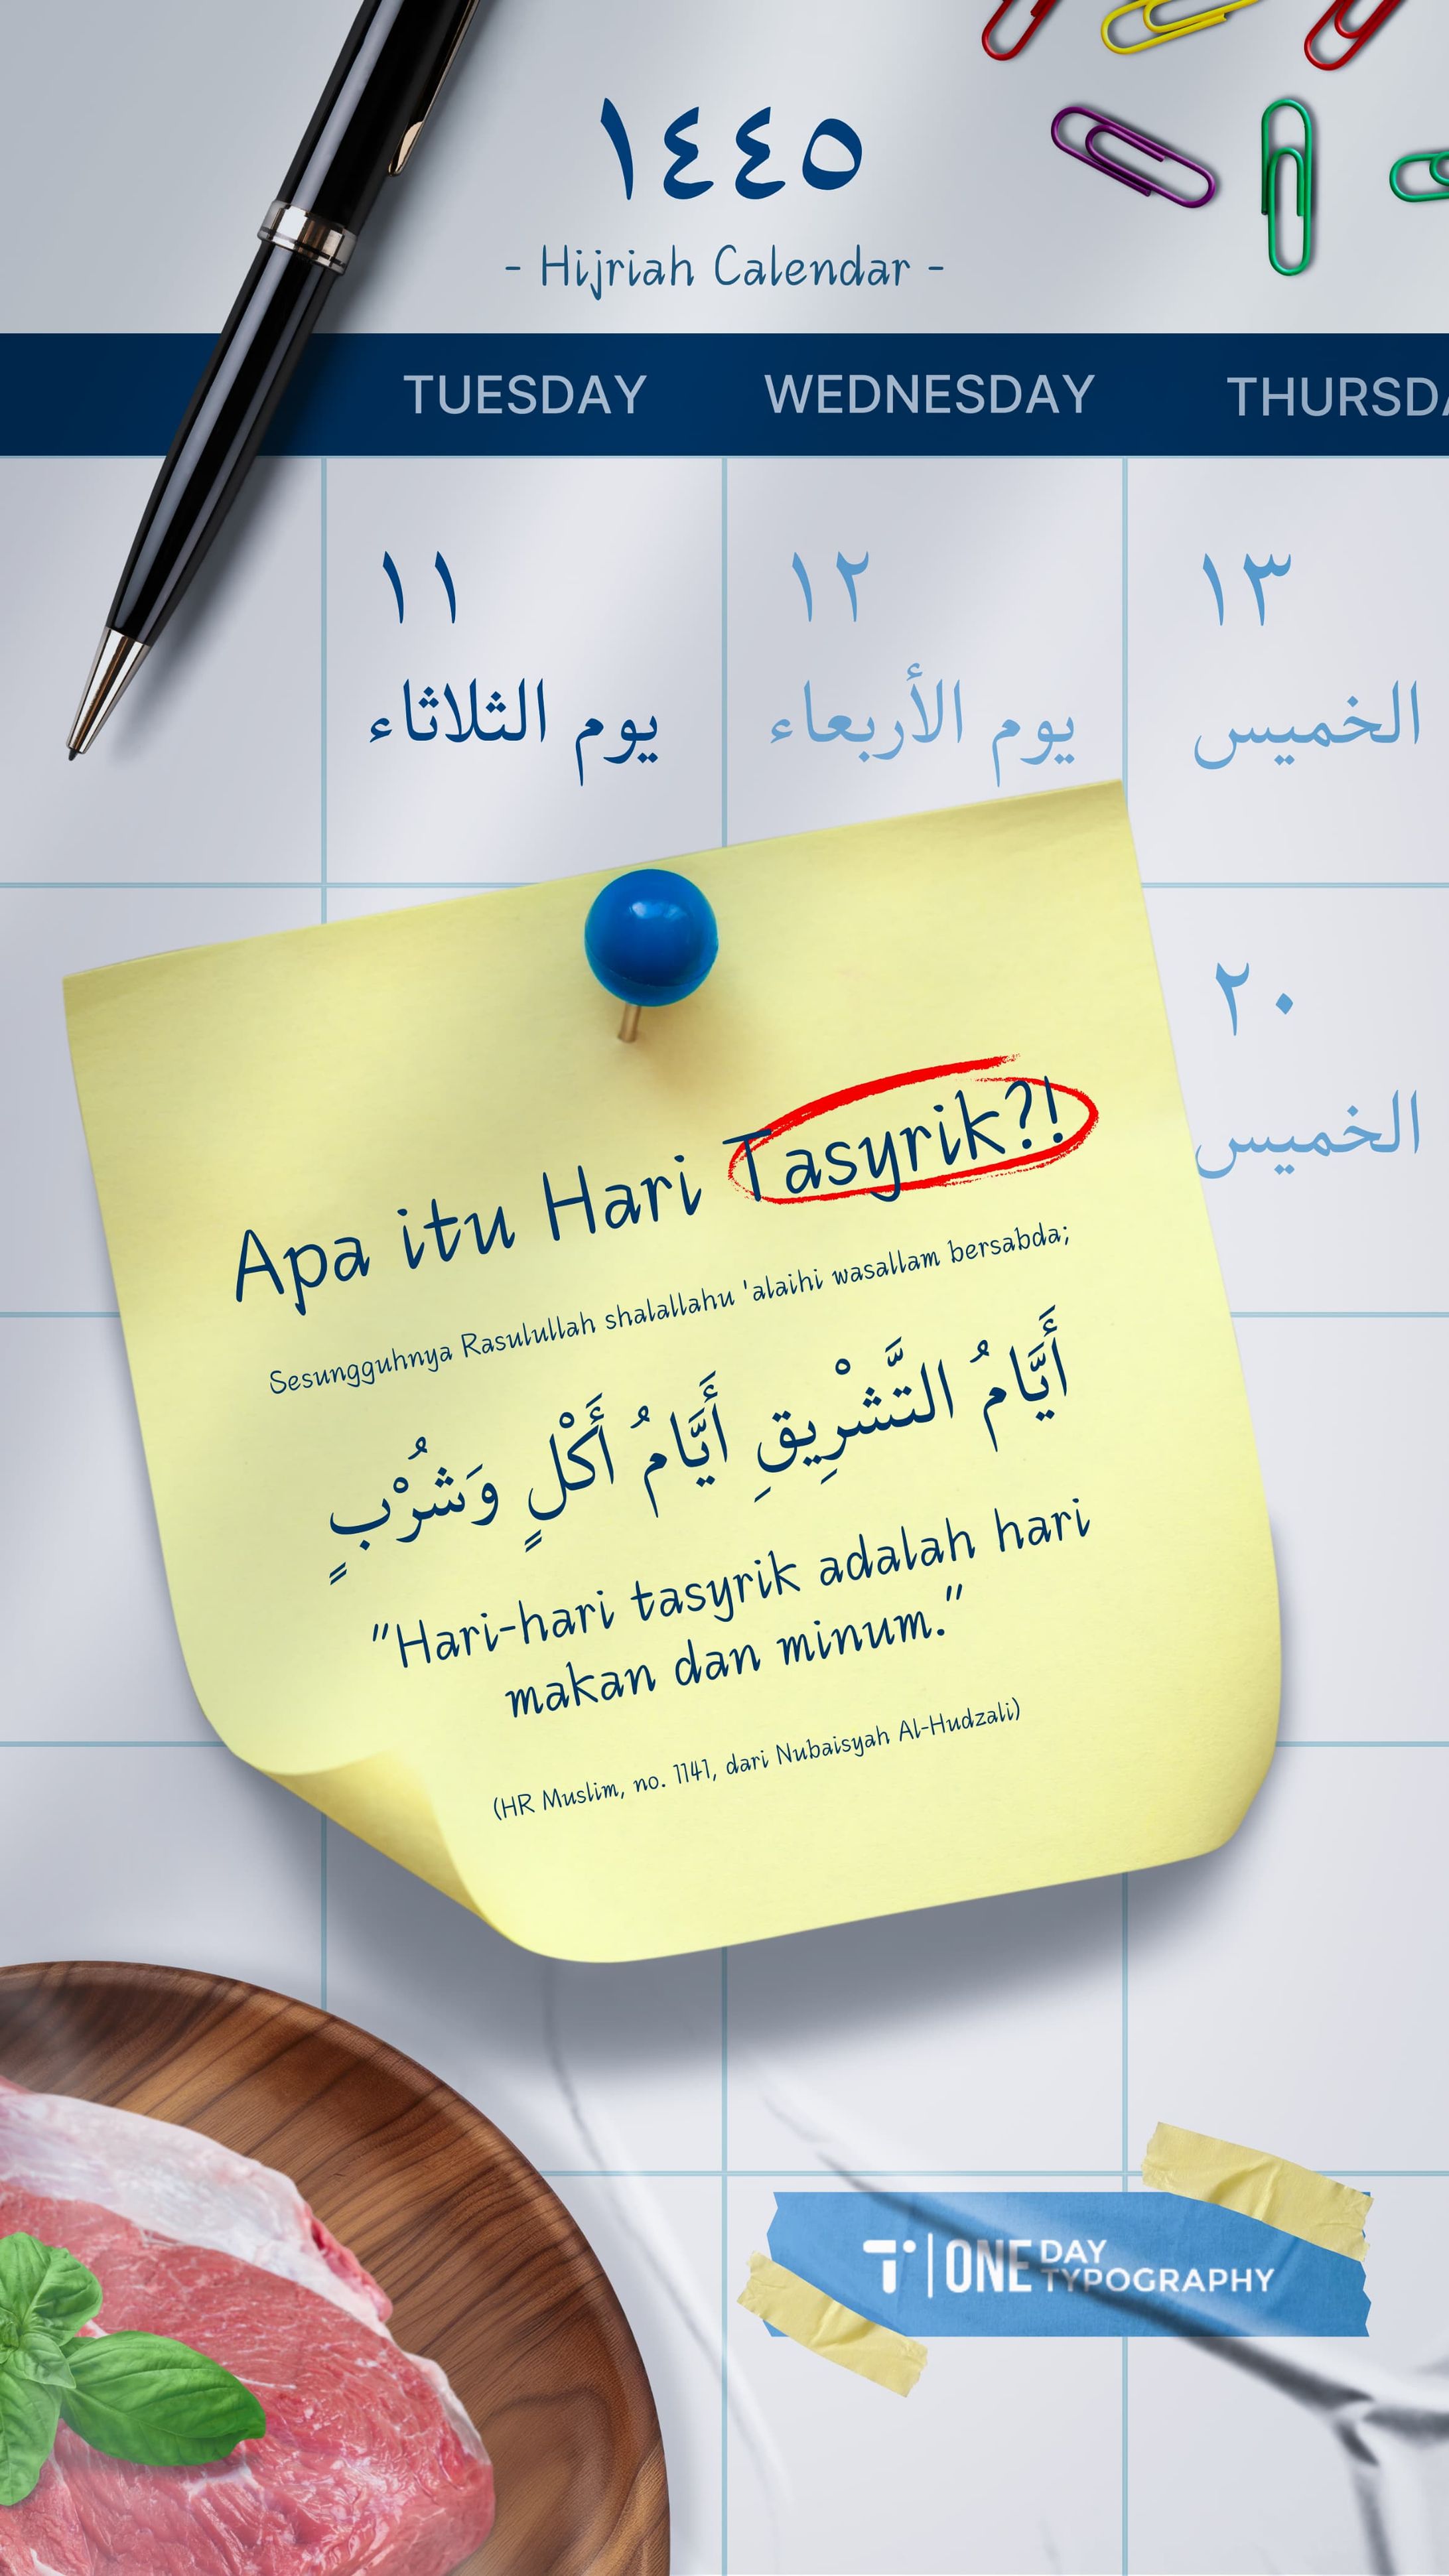 ١٤٤٥
- Hijriah Calendar -
TUESDAY WEDNESDAY
١١ ١٢ ١٣
يوم الثلاثاء يوم الأربعاء الخميس
٢٠
الخميس
Apa itu Hari Tasyrik?!
Sesungguhnya Rasulullah shalallahu 'alaihi wasallam bersabda;
أَيَّامُ التَّشْرِيقِ أَيَّامُ أَكْلٍ وَشُرْبٍ
"Hari-hari tasyrik adalah hari
makan dan minum."
(HR Muslim, no. 1141, dari Nubaisyah Al-Hudzali)
ONE DAY
TYPOGRAPHY